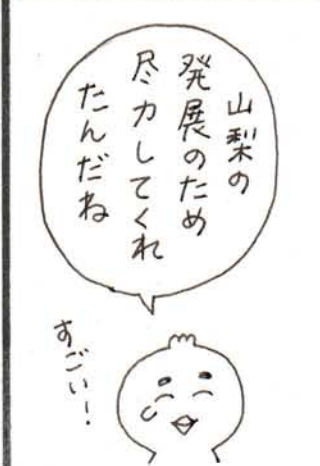 山梨の
発展のため
尽力してくれ
たんだね
すごい！